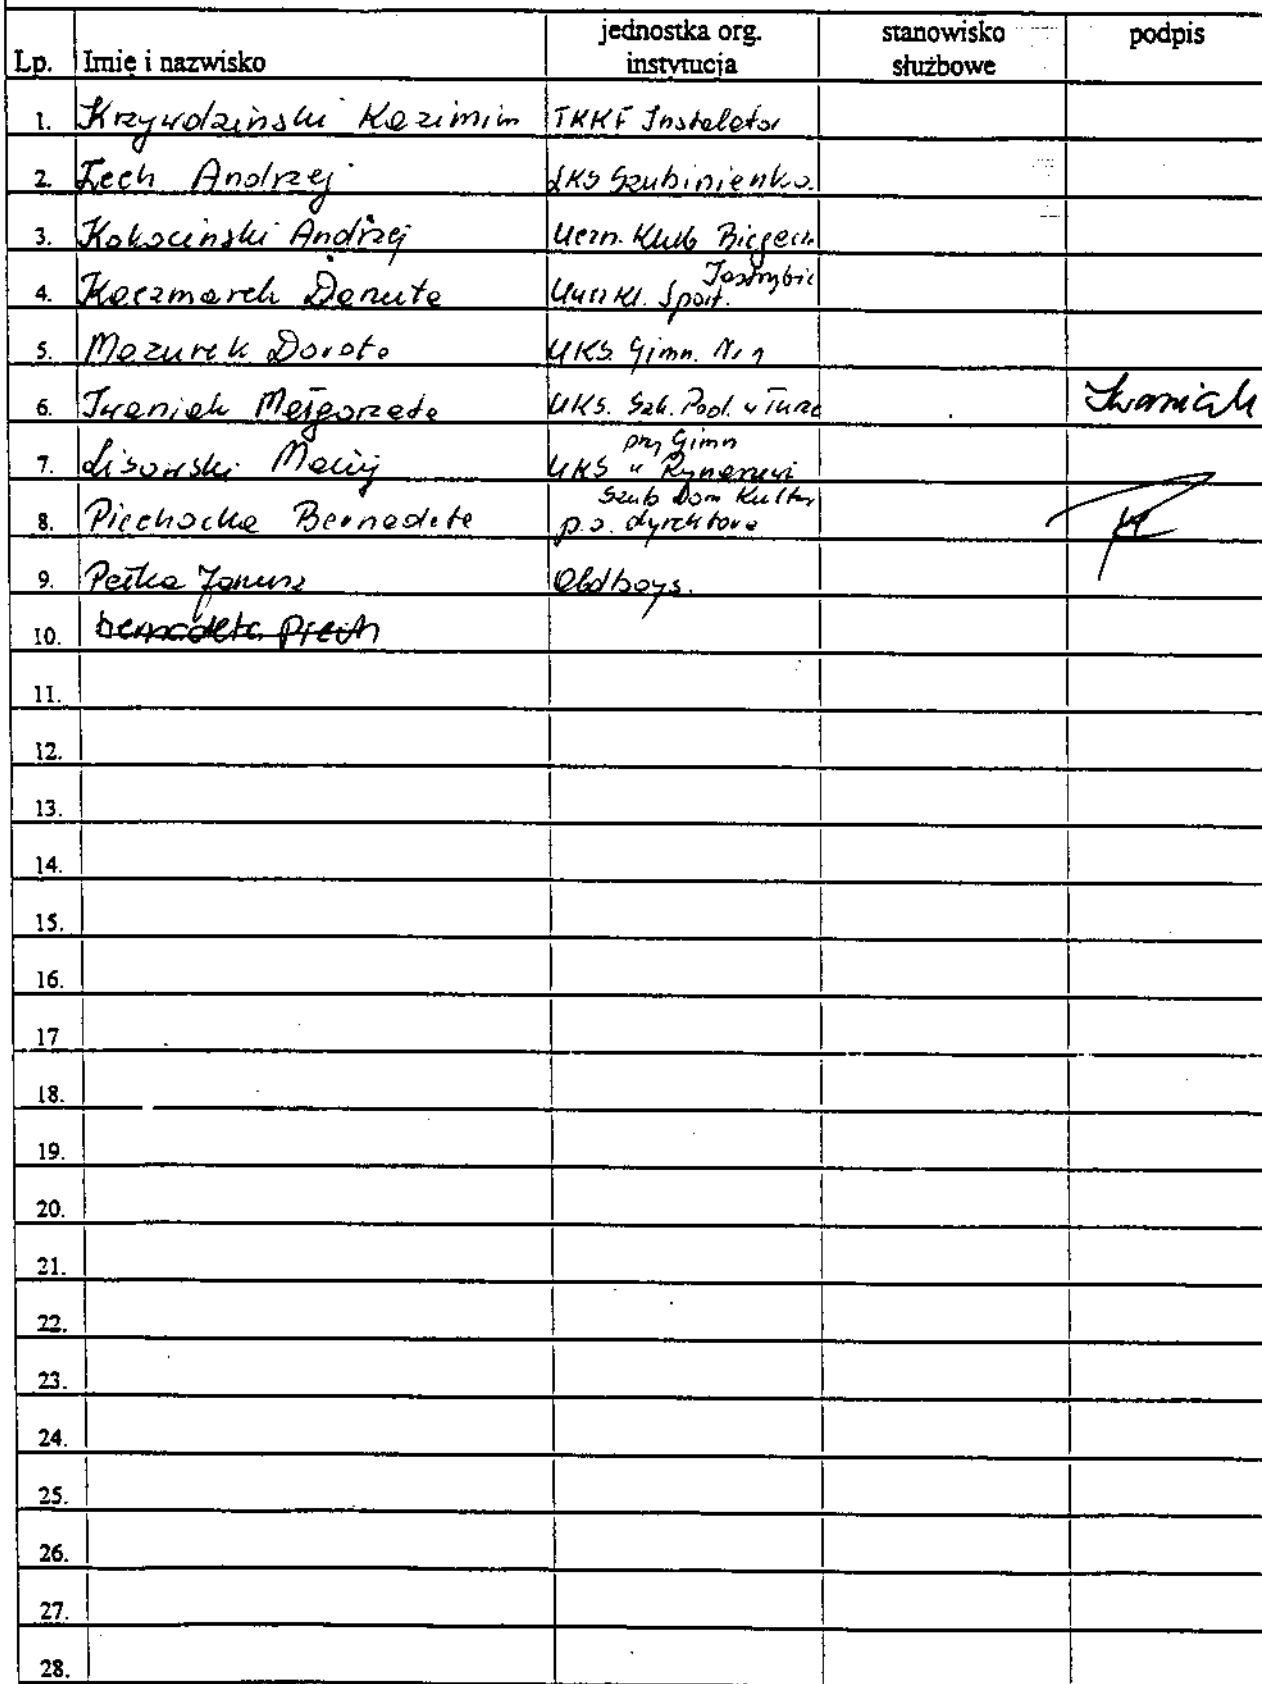 Lp. Imię i nazwisko jednostka org. instytucja stanowisko służbowe podpis
1. Krzywdziński Kazimierz TKKF Instalator
2. Lech Andrzej LKS Szubinianka
3. Kokociński Andrzej Uczn. Klub Biegacz
4. Kaczmarek Danuta Uczn Kl. Sport. Jastrzębie
5. Mazurek Dorota UKS. Gimn. Nr 1
6. Iwaniak Małgorzata UKS. Szk. Pod. w Turze Iwaniak
7. Lisowski Maciej UKS przy Gimn w Rynarzewi
8. Piechocka Bernadeta Szub Dom Kultury p.o. dyrektora
9. Pełka Janusz Oldboys.
10. bernadeta Piech
11.
12.
13.
14.
15.
16.
17
18.
19.
20.
21.
22.
23.
24.
25.
26.
27.
28.